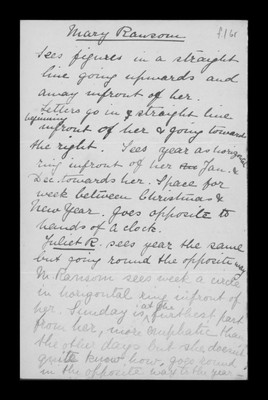 Mary Ransom
f.141
Sees figures in a straight
line going upwards and
away infront of her.
Letters go in a straight line
beginning infront of her & going towards
the right. Sees year as horizontal
ring infront of her Jan. &
Dec. towards her. Space for
week between Christmas &
New Year. Goes opposite to
hands of a clock.
Juliet R. sees year the same
but going round the opposite way
M. Ransom sees week a
in horizontal ring infront of
her. Sunday is at the furthest part
from her, more emphatic than
the other days but she doesn't
quite know how, goes round
in the opposite way to the year.